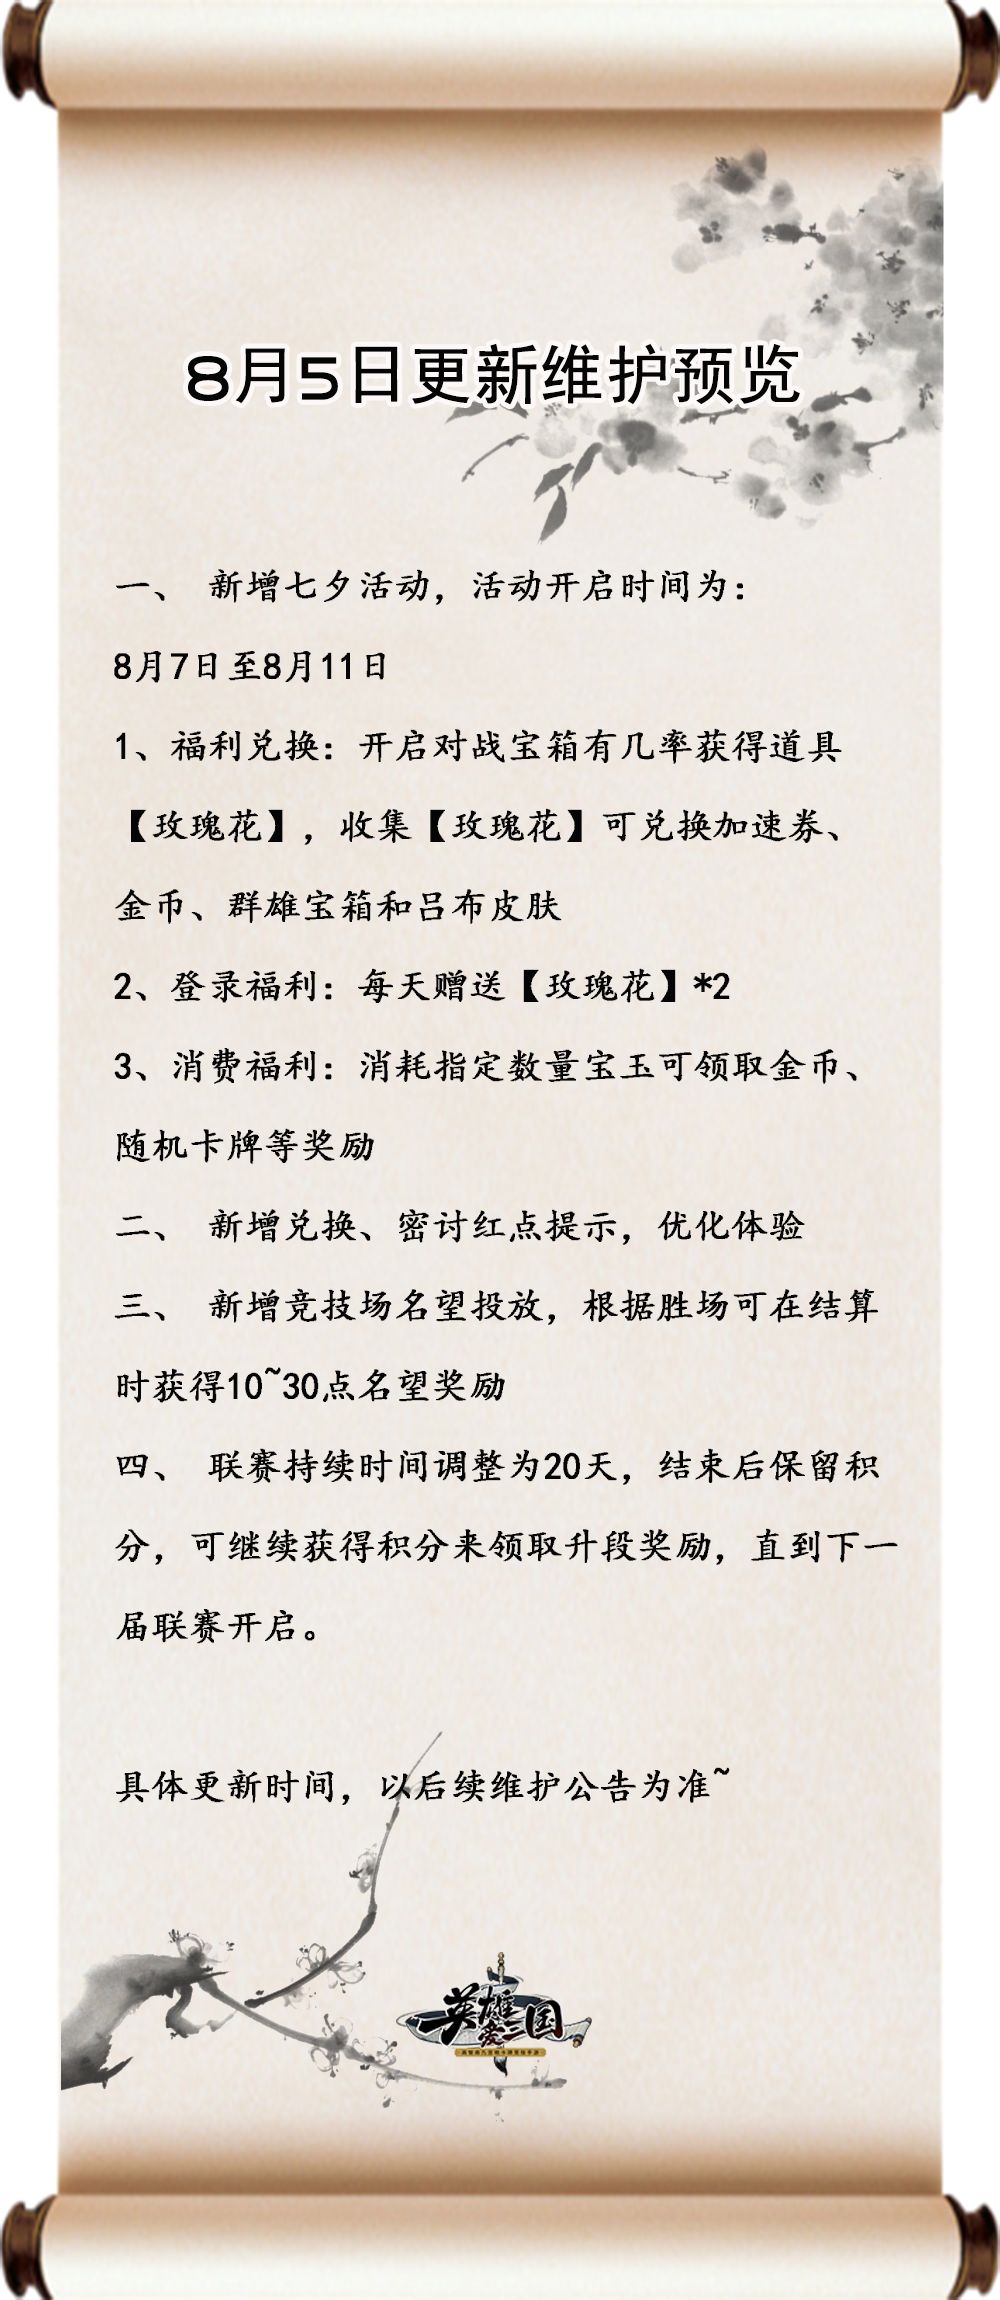 8月5日更新维护预览
一、 新增七夕活动，活动开启时间为：
8月7日至8月11日
1、福利兑换：开启对战宝箱有几率获得道具
【玫瑰花】，收集【玫瑰花】可兑换加速券、
金币、群雄宝箱和吕布皮肤
2、登录福利：每天赠送【玫瑰花】*2
3、消费福利：消耗指定数量宝玉可领取金币、
随机卡牌等奖励
二、 新增兑换、密讨红点提示，优化体验
三、 新增竞技场名望投放，根据胜场可在结算
时获得10~30点名望奖励
四、 联赛持续时间调整为20天，结束后保留积
分，可继续获得积分来领取升段奖励，直到下一
届联赛开启。
具体更新时间，以后续维护公告为准~
英雄爱三国